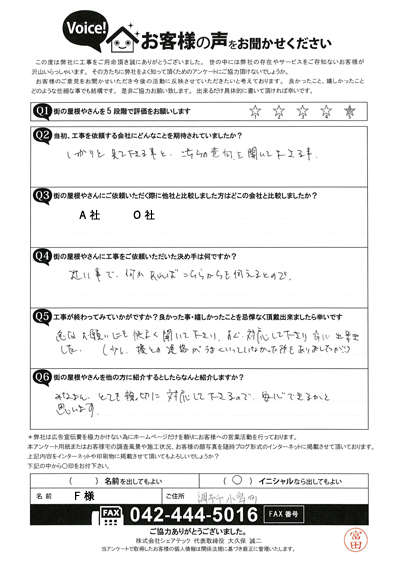 Voice!
お客様の声をお聞かせください
この度は弊社に工事をご用命頂き誠にありがとうございました。世の中には弊社の存在やサービスをご存知ないお客様が
沢山いらっしゃいます。その方たちに弊社をよく知って頂くためのアンケートにご協力頂けないでしょうか。
お客様のご意見をお聞かせいただき今後の活動に反映させていただきたいと考えております。良かったこと、嬉しかったこと
どのような些細な事でも結構です。是非ご協力お願い致します。出来るだけ具体的に書いて頂ければ幸いです。
Q1 街の屋根やさんを5段階で評価をお願いします
Q2 当初、工事を依頼する会社にどんなことを期待されていましたか?
しっかりと見て下さる事と、こちらの意向を聞いて下さる事。
Q3 街の屋根やさんにご依頼いただく際に他社と比較しました方はどこの会社と比較しましたか?
A社 O社
Q4 街の屋根やさんに工事をご依頼いただいた決め手は何ですか?
近い事で、何かあればこちらからも伺えるとので。
Q5 工事が終わってみていかがですか?良かった事・嬉しかったことを忌憚なく頂戴出来ましたら幸いです
色々お願いにも快よく聞いて下さり、すぐ対応して下さり
した。(少し、後との連絡がうまくいっていなかった所もありましたが)
Q6 街の屋根やさんを他の方に紹介するとしたらなんと紹介しますか?
みなさん、とても親切に対応して下さるので、安心できるかと
思います。
*弊社は広告宣伝費を極力かけない為にホームページだけを頼りにお客様への営業活動を行っております。
本アンケート用紙またはお客様宅の調査風景や施工状況、お客様の顔写真を随時ブログ形式のインターネットに掲載させて頂いております。
上記内容をインターネットや印刷物に掲載させて頂いてもよろしいでしょうか?
下記の中から○印をお付け下さい。
( )名前を出してもよい (○)イニシャルなら出してもよい
名前 F様 ご住所 調布市小島町
FAX 042-444-5016 FAX番号
ご協力ありがとうございました。
株式会社シェアテック 代表取締役 大久保 誠二
当アンケートで取得したお客様の個人情報は関係法規に基づき厳正に管理いたします。
富田